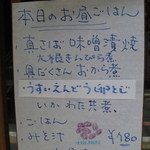 本日のお昼ごはん
・真さば味噌漬焼
大根きんぴら煮
・具だくさんおから煮
・うすいえんどう卵とじ
いかわた煮
・ごはん
・みそ汁
¥780